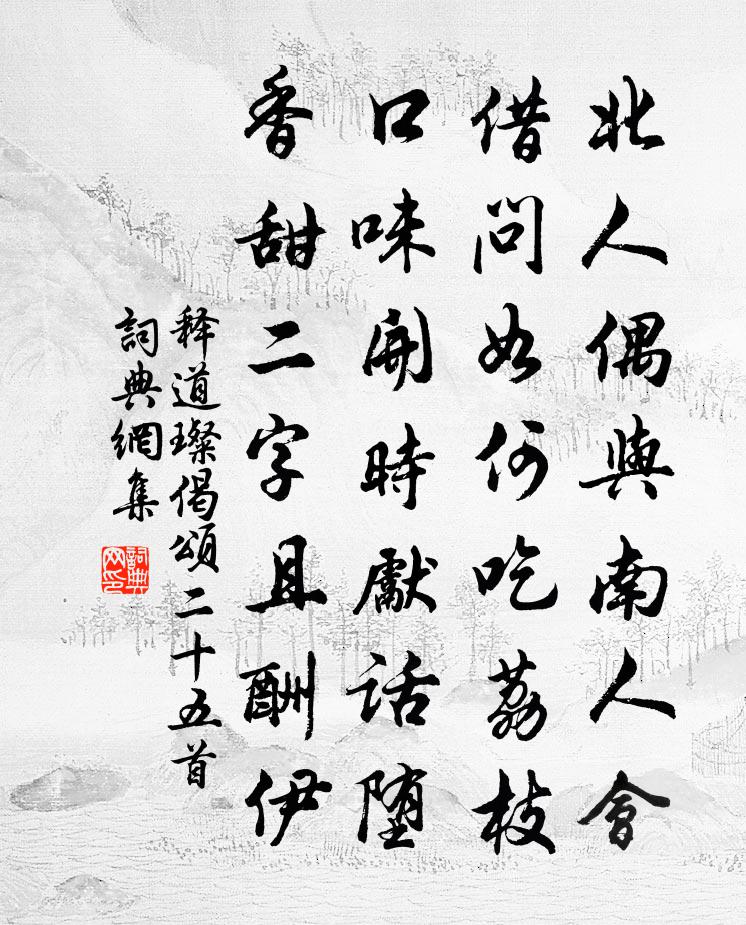 北人偶與南人會
借問如何吃荔枝
口味開時獻話堕
香甜二字且酬伊
释道璨偈頌二十五首
詞典網集
詞典
网印